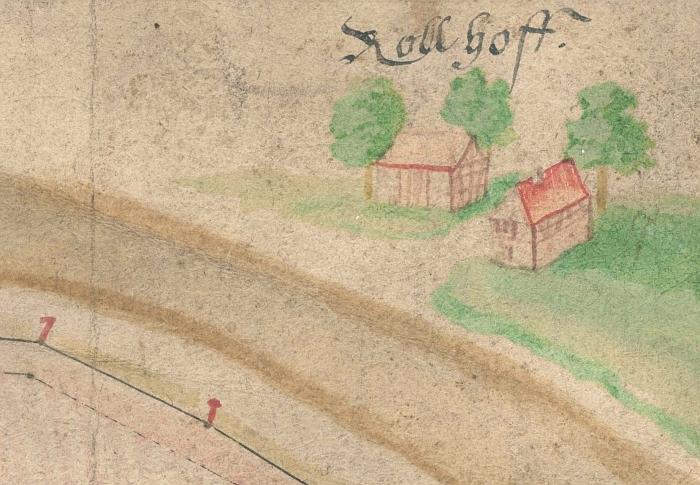 Rollhoff.
7